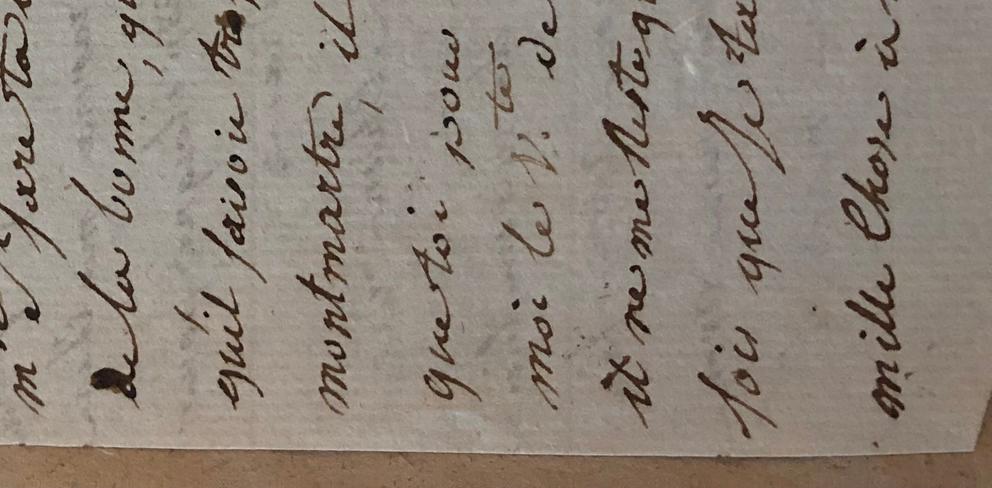 de la bonne, qu
qu'il faisoit tre
montmartre, il
que toi pour
moi le p.te de
il ne me Reste q
fois que Je te
mille Chose à